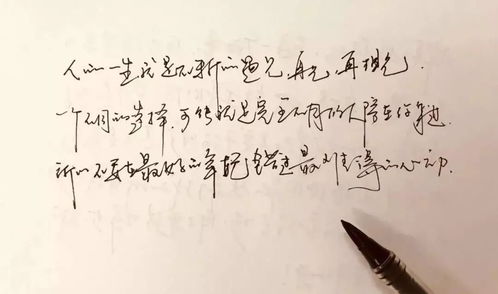 人的一生就是不断的遇见,再见,再相见.
一个不同的选择,可能就是完全不同的人陪在你身边.
所以不要在最好的年纪错过最得的心动.